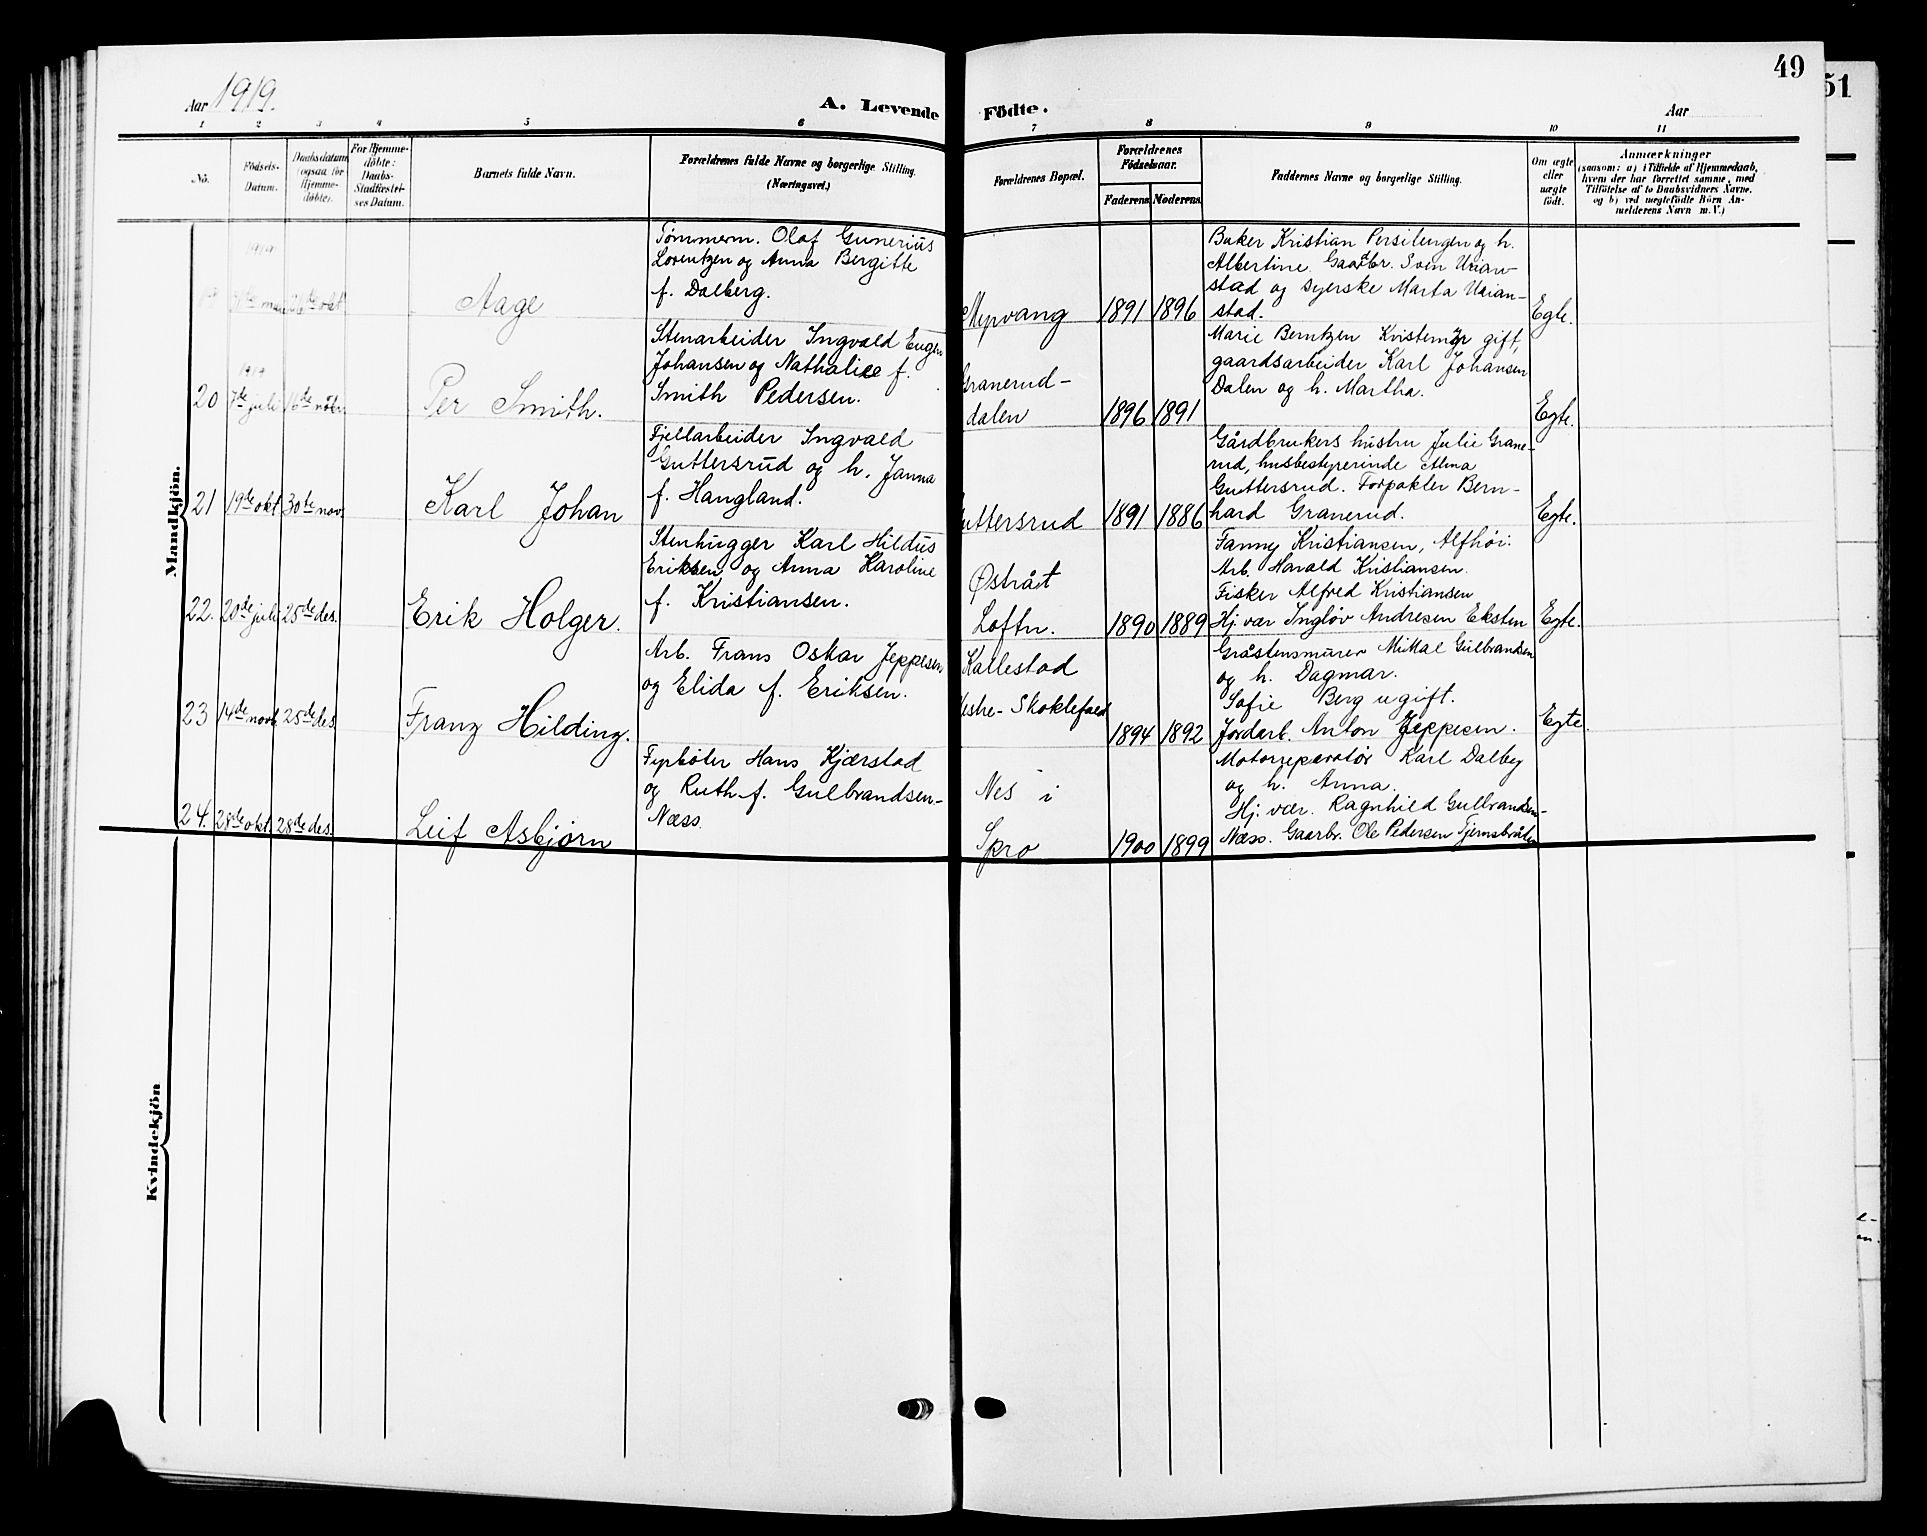 49
51
Aar 1919.
A. Levende Födte.
Aar
1 2 3 4 5 6 7 8 9 10 11
No.
Födsels-
Datum.
Daabsdatum
(ogsaa for
Hjemme-
döbte).
For Hjemme-
döbte:
Daabs-
Stadfæstel-
ses Datum.
Barnets fulde Navn.
Forældrenes fulde Navne og borgerlige Stilling.
(Næringsvei.)
Forældrenes Bopæl.
Forældrenes
Födselsaar.
Faderens Moderens
Faddernes Navne og borgerlige Stilling.
Om ægte
eller
uægte
födt.
Anmærkninger
(saasom: a) i Tilfælde af Hjemmedaab,
hvem der har forrettet samme, med
Tilföielse af to Daabsvidners Navne.
og b) ved uægtefödte Börn An-
melderens Navn m. V.)
Mandkjön.
1919
26de okt
Aage
Tømmerm. Olaf Gunerius
Lorentzen og Anna Bergitte
f. Dalberg.
Myrvang
1891 1896
Baker Kristian Persilengen og h.
Albertine. Gaardbr. Sven Urian-
stad og syerske Marta Urian-
stad.
Egte.
1919
20 7de juli 16de nobr.
Per Smith.
Stenarbeider Ingvald Eugen
Johansen og Nathalie f.
Smith Pedersen.
Granerud-
dalen
1896 1891
Marie Berntzen Kvistemyr gift,
gaardsarbeider Karl Johansen
Dalen og h. Martha.
Egte.
21 19de okt 30te nov.
Karl Johan
Fjellarbeider Ingvald
Guttersrud og h. Janna
f. Haugland.
Guttersrud
1891 1886
Gårdbrukers hustru Julie Grane-
rud, husbestyrerinde Alma
Guttersrud. Forpakter Bern-
hard Granerud.
Egte.
22. 20de juli 25de des.
Erik Holger.
Stenhugger Karl Hildus
Eriksen og Anna Karoline
f. Kristiansen.
Østråt
Loftn.
1890 1889
Fanny Kristiansen, Alfhøi.
Arb. Harald Kristiansen.
Fisker Alfred Kristiansen
Hj. vær Ingløv Andresen Eksten
Egte.
23 14de novb 25de des
Franz Hilding.
Arb. Frans Oskar Jeppesen
og Elida f. Eriksen.
Kallestad
Vestre-Skoklefald
1894 1892
Gråstensmurer Gulbrandsen
og h. Dagmar.
Sofie Berg ugift.
Jordarb. Anton Jeppesen.
Egte.
24. 28de okt 28de des.
Leif Asbjørn
Fyrbøter Hans Kjærstad
og Ruth f. Gulbrandsen-
Næss.
Nes i
Spro
1900 1899
Motorreparatør Karl Dalby
og h. Anna.
Hj. vær. Ragnhild Gulbrandsen-
Næss. Gaarbr. Ole Pedersen Tjernsbråten
Kvindekjön